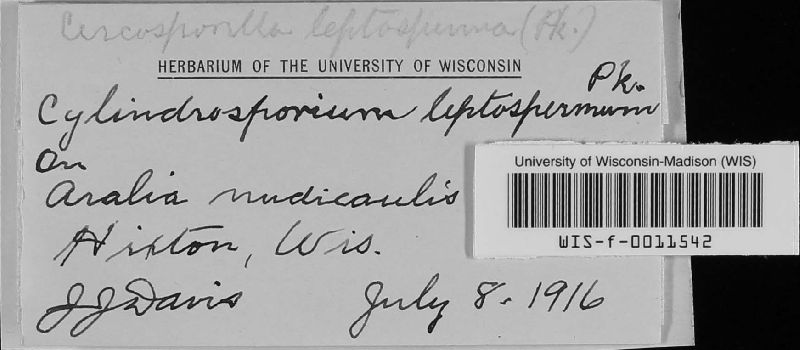 Cercosporella leptosperma (Pk.)
HERBARIUM OF THE UNIVERSITY OF WISCONSIN
Cylindrosporium leptospermum Pk.
On
Aralia nudicaulis
Hixton, Wis.
JJDavis July 8. 1916
University of Wisconsin-Madison (WIS)
WIS-f-0011542